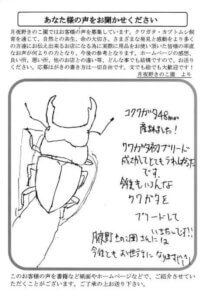 あなた様の声をお聞かせください
月夜野きのこ園ではお客様の声を募集しています。クワガタ・カブトムシ飼
育を通じて、自然との共生、命の大切さ、さまざまな発見と感動をより多く
の方達にお伝え出来るお店になる為に
月夜野きのこ園 より
コクワガタ48mmが
産まれました!
クワガタ初のブリード
成功してとてもうれしかった
です。
今後もいろんな
クワガタを
ブリードして
いきたいです!!
月夜野きのこ園さんには
今後ともお世話になります
このお客様の声を書籍など紙面やホームページなどで、ご紹介させてい
ただくことがございます。ご了承の上お送り下さい。